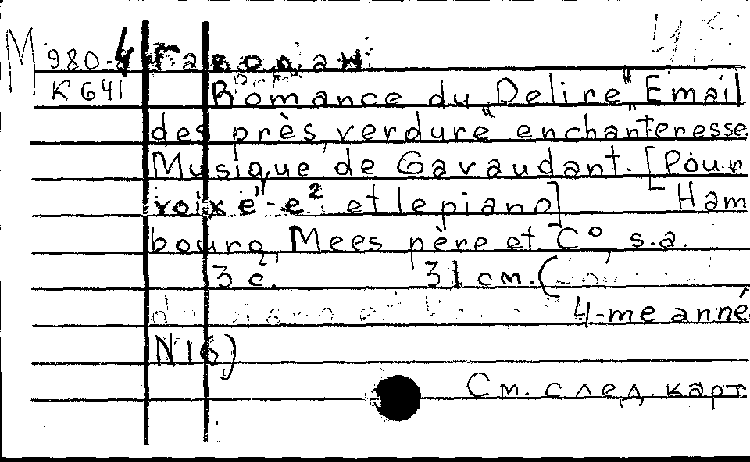 М 980-4
К 641
Romance du "Delire" Email
des près, verdure enchanteresse
Musique de Gavaudant. [Pour
voix e¹-e² et le piano] Ham
bourg, Mees père et Cº s.a.
3 c. 31 cm. (
4-me anné
N 16)
См. след. карт